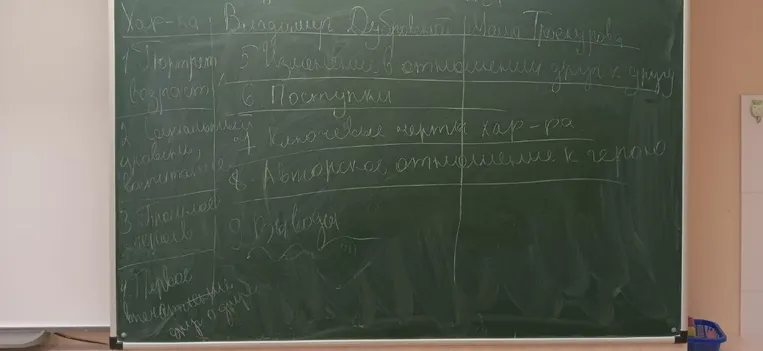 Хар-ка Владимир Дубровский Маша Троекурова
1 Портрет
возраст
2 Социальный
уровень,
воспитание
3 Прошлое
героев
4 Первое
впечатление
друг о друге
5 Изменение в отношении друг к другу
6 Поступки
7 Ключевые черты хар-ра
8 Авторское отношение к герою
9 Выводы